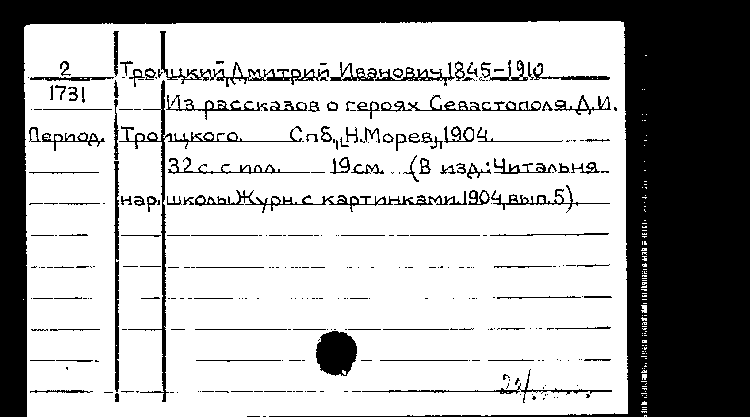 2 Троицкий, Дмитрий Иванович, 1845-1910
1731 Из рассказов о героях Севастополя. Д.И.
Период. Троицкого. Спб., Н.Морев, 1904.
32 с. с илл. 19 см. (В изд.: Читальня
нар. школы. Журн. с картинками. 1904, вып. 5).